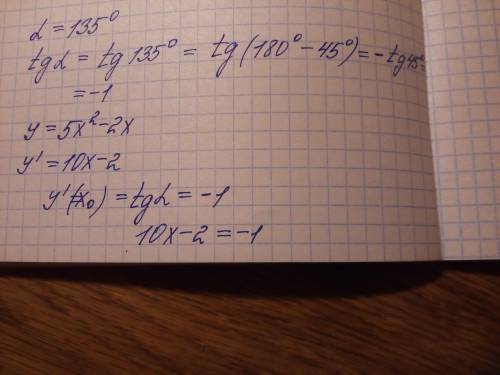 α = 135°
tgα = tg 135° = tg(180° − 45°) = − tg45° =
= −1
y = 5x² − 2x
y' = 10x − 2
y'(x₀) = tgα = −1
10x − 2 = −1